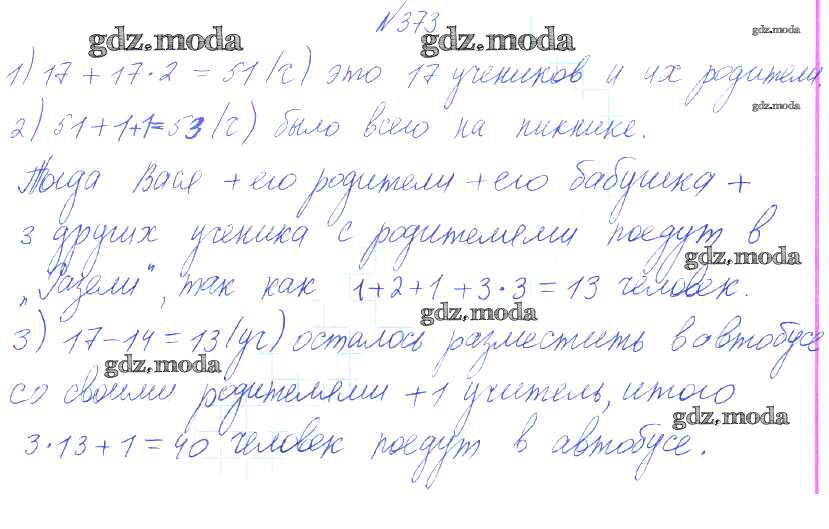 N373
gdz.moda gdz.moda gdz.moda
1) 17 + 17·2 = 51 (ч) это 17 учеников и их родители.
gdz.moda
2) 51+1+1=53 (ч) было всего на пикнике.
Тогда Вася + его родители + его бабушка +
3 других ученика с родителями поедут в
gdz.moda
„Газели", так как 1+2+1+3·3 = 13 человек.
gdz.moda
3) 17-14=13 (уч) осталось разместить в автобусе
gdz.moda
со своими родителями +1 учитель, итого
gdz.moda
3·13+1=40 человек поедут в автобусе.